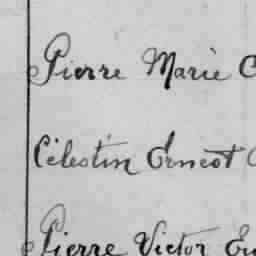 Pierre Marie C
Célestin Ernest
Pierre Victor Eu